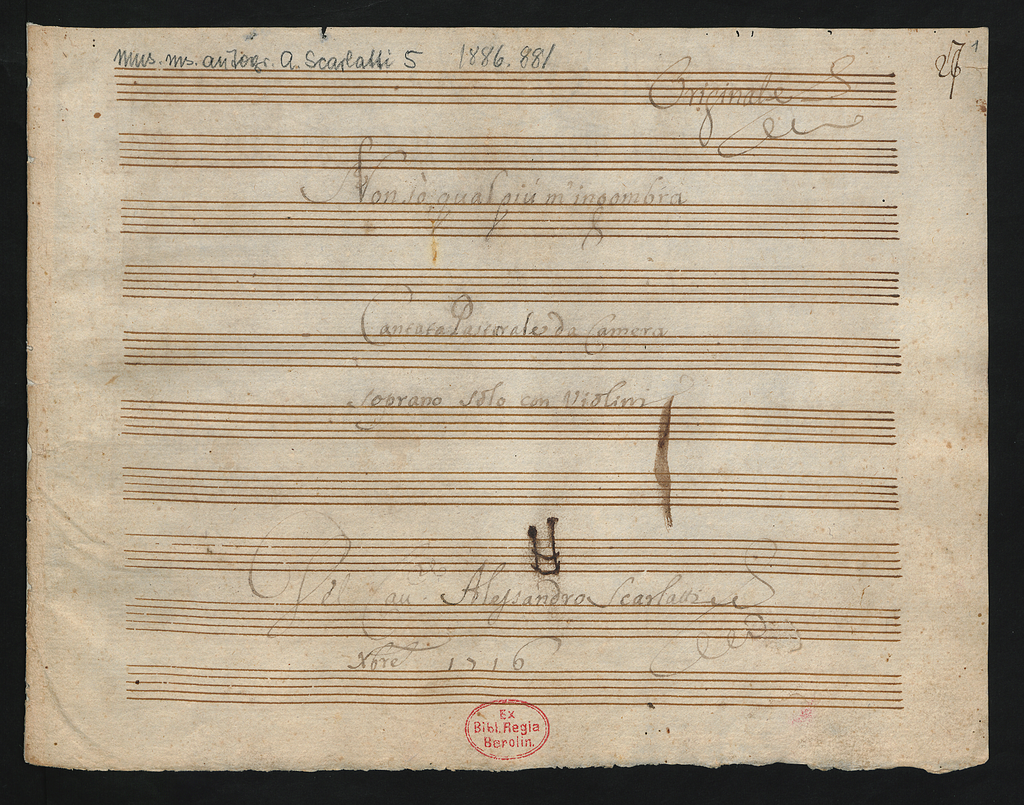 mus. ms. autogr. A. Scarlatti 5 1886.881
1
Originale
Non sò qual più m'ingombra
Cantata Pastorale da Camera
soprano solo con Violini
Del Cau.re Alessandro Scarlatti
Xbre 1716
Ex
Bibl. Regia
Berolin.